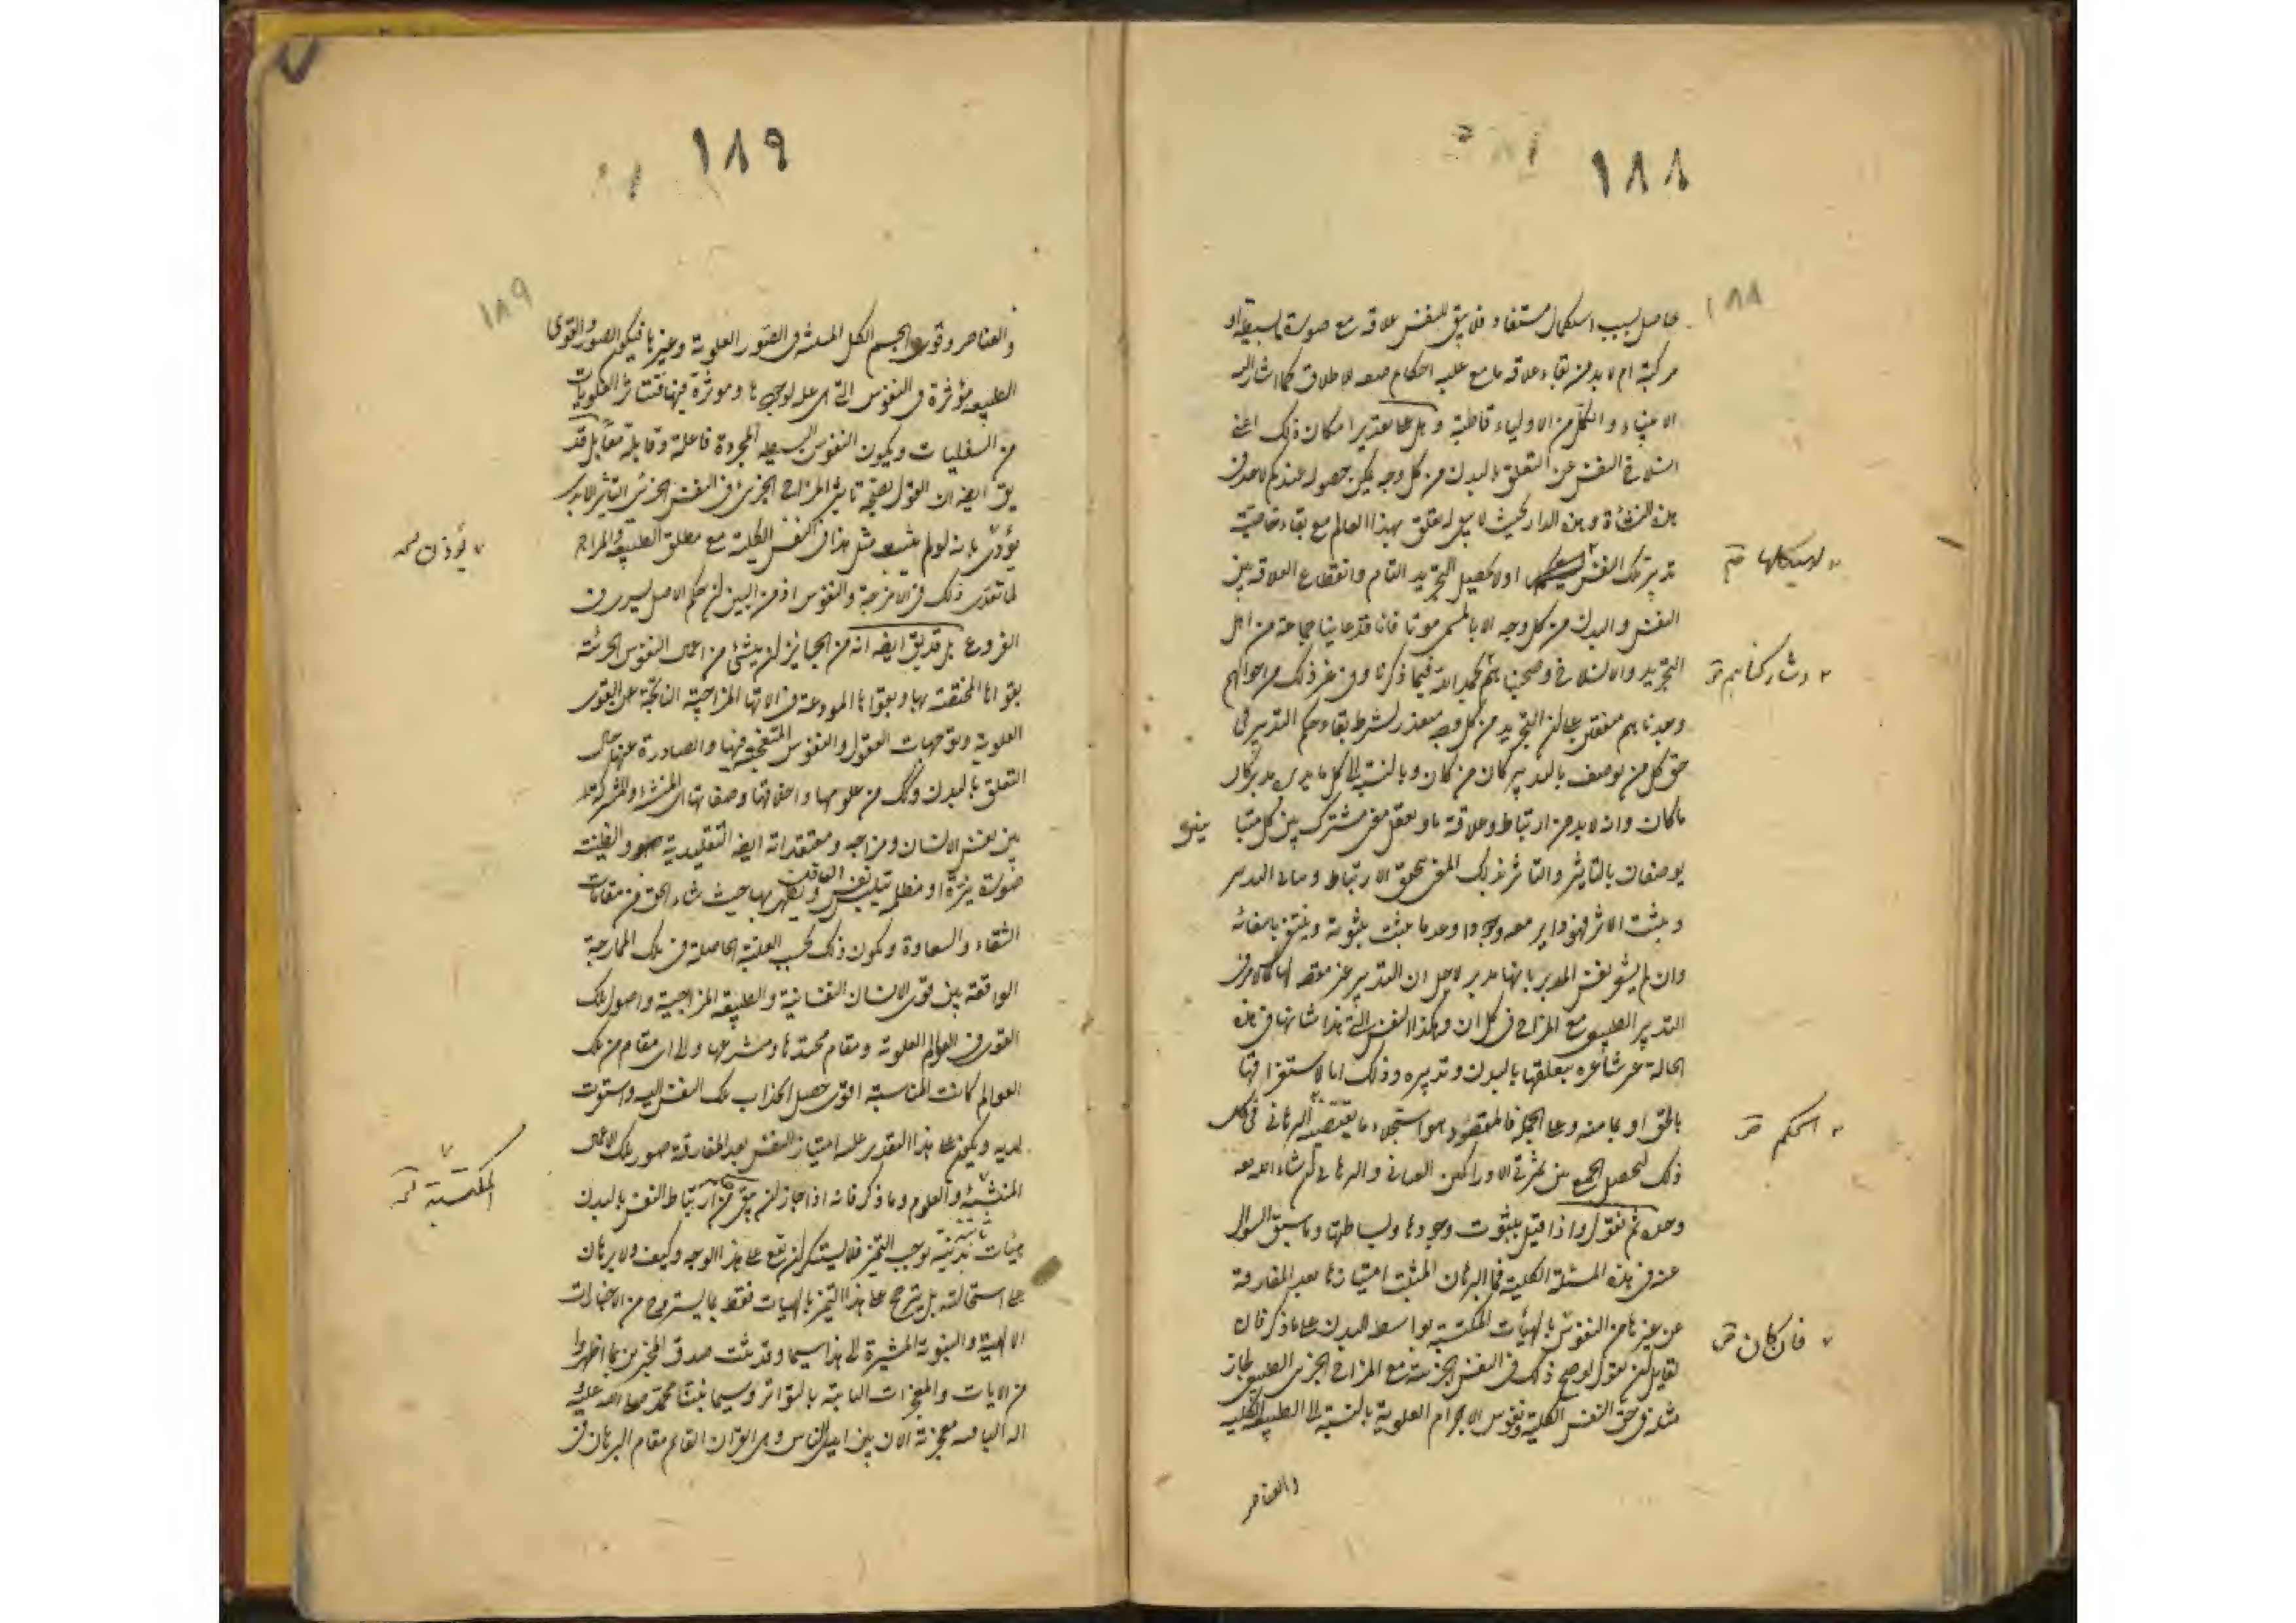 ١٨٨
١٨٨
حاصل بسبب استكمال مستفاد فلا يبقى للنفس علاقة مع صورة بسيطة او
مركبة ام لا بد من بقاء علاقة ما مع غلبة احكام صفة الاطلاق كما اشار اليه
الانبياء والكمّل من الاولياء قاطبة وهل على تقدير امكان ذلك اعنى
انسلاخ النفس عن التعلق بالبدن من كل وجه يمكن حصوله عندكم لاحد فى
هذه النشأة وهذه الدار بحيث لا يبقى له تعلق بهذا العالم مع بقاء خاصية
تدبير تلك النفس اولا يحصل التجريد التام وانقطاع العلاقة بين
لهيكلها
النفس والبدن من كل وجه الا بالمسمى موتا فانا قد عاينا جماعة من اهل
التجريد والانسلاخ وصحبناهم بحمد الله فيما ذكرنا وفى غير ذلك من احوالهم
وشاركناهم
وجدناهم متفقين على ان التجريد من كل وجه متعذر لشرط بقاء حكم التدبير فى
حق كل من يوصف بالتدبير كان من كان وبالنسبة الى كل ما يدبر كان
ما كان وانه لا بد من ارتباط وعلاقة ما وتعقل معنى مشترك بين كل شيئين
يوصفان بالتأثير والتأثر فبذلك المعنى تحقق الارتباط وسار التدبير
ويثبت الاثر فهو داير معه وجودا وعدما يثبت بثبوته وينتفى بانتفائه
وان لم يشعر نفس المدبر بانها مدبر لاجل ان التدبير غير مقصود لها كالامر فى
التدبير الطبيعى مع المزاج فى كل ان وهكذا النفس التى هذا شانها فى هذه
الحالة غير شاعرة بتعلقها بالبدن وتدبيره وذلك اما لاستغراقها
بالحق او بما منه وعلى الجملة فالمقصود هو استجلاء ما يقتضيه البرهانى فى كل
الحكم
ذلك لتحصيل الجمع بين ثمرتى الادراكين العيانى والبرهانى ان شاء الله
وحده ثم نقول واذا قيل بثبوت وجودها وبساطتها وما سبق السوال
عنه فى هذه المسئلة الكلية فما البرهان المثبت امتيازها بعد المفارقة
عن غيرها من النفوس بالهيآت المكتسبة بواسطة البدن على ما ذكر فان
فان كان
لقايل ان يقول لو صح ذلك فى النفس الجزئية مع المزاج الجزئى الطبيعى لجاز
مثله فى حق النفس الكلية ونفوس الاجرام العلوية بالنسبة الى الطبيعة الكلية
والعناصر
١٨٩
١٨٩
والعناصر وقوى الجسم الكل المسمى فى الصور العلوية وغيرها فيكون الصور والقوى
الطبيعية مؤثرة فى النفوس التى هى علة لوجودها ومؤثرة فيها فتتأثر العلويات
من السفليات ويكون النفوس البسيطة المجردة فاعلة وقابلة معًا بل قد
يق ايضا ان القول بصحة تاثير المزاج الجزئى فى النفس الجزئى التاثير لا بدى
يؤدى بانه لو لم يثبت مثل هذا فى النفس الكلية مع مطلق الطبيعة والمزاج
يؤذن
لما تعدى ذلك فى الامزجة والنفوس اذ من البين ان حكم الاصل يسرى فى
الفروع بل قد يق ايضا انه من الجايز ان ينشئ من اعمال النفوس الجزئية
بقواها المختصة بها وبقواها المودعة فى الاتها المزاجية الناتجة عن القوى
العلوية وتوجهات العقول والنفوس المتعينة منها والصادرة عنها حال
التعلق بالبدن وذلك من علومها واخلاقها وصفاتها المنشئة والمشتركة
بين نفس الانسان ومزاجه ومعتقداته ايضا التقليدية والظنية
صورة نيرة او مظلمة تتلبس ويظهر بها حيث شاء الحق من مقامات
الشقاء والسعادة ويكون ذلك بحسب الغلبة الحاصلة فى تلك الممازجة
الواقعة بين قوى الانسان النفسانية والطبيعة المزاجية واصول تلك
القوى فى العوالم العلوية ومقام محتدها ومشرعها والى اى مقام من تلك
العوالم كانت المناسبة اقوى حصل انجذاب تلك النفس اليه واستقرت
لديه ويكون على هذا التقدير علة امتياز النفس بعد المفارقة صور تلك الاعمال
المنشئة والعلوم وما ذكر فانه اذا جاز ان يبقى من ارتباط النفس بالبدن
المكتسبة
هيئات بدنية يوجب التميز فلا يستنكر ان يقع على هذا الوجه وكيف ولا برهان
على استحالته بل يترجح على هذا التميز بالهيات فقط بما يستروح من الاخبارات
الالهية والنبوية المشيرة الى هذا سيما وقد ثبت صدق المخبرين بما اظهروا
من الايات والمعجزات الثابتة بالتواتر وسيما نبينا محمد صلى الله عليه
اله الباقية معجزته الان بين ايدى الناس وهى القران القائم مقام البرهان فى